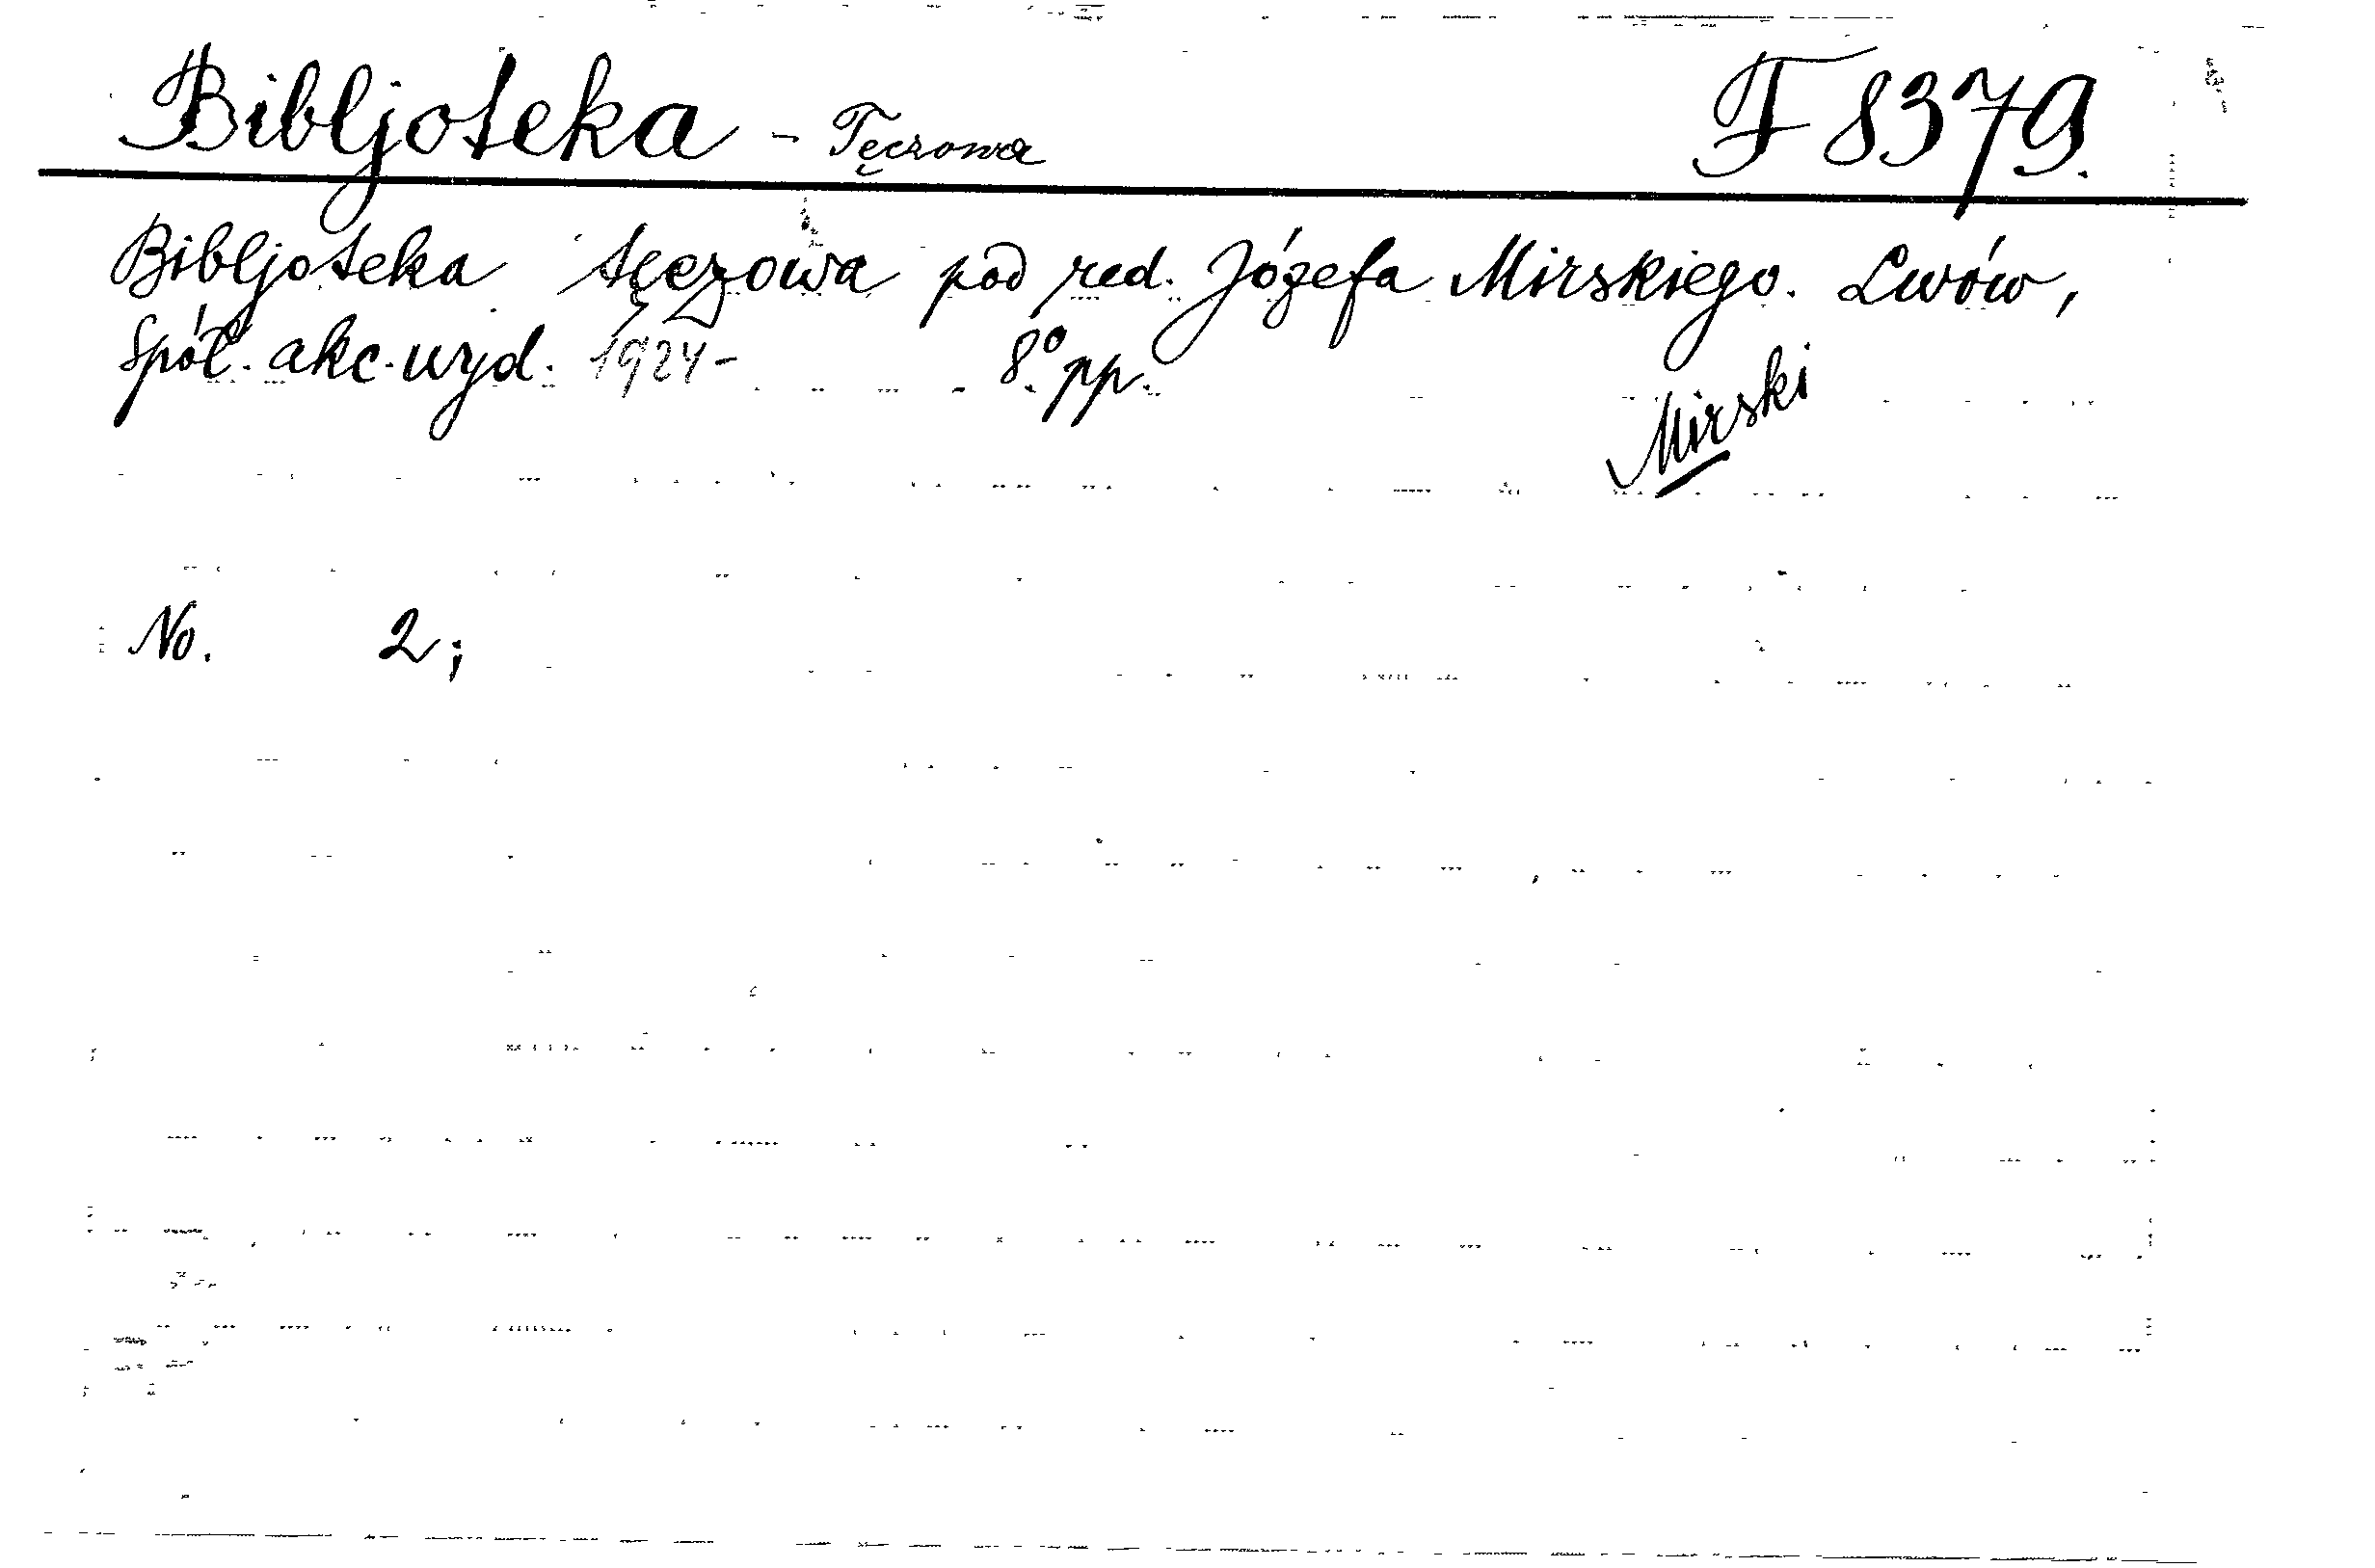 Bibljoteka - Tęczowa F 8379.
Bibljoteka tęczowa pod red. Józefa Mirskiego. Lwów,
Spół. akc. wyd. 1924- 8º. pp.
Mirski
No. 2;